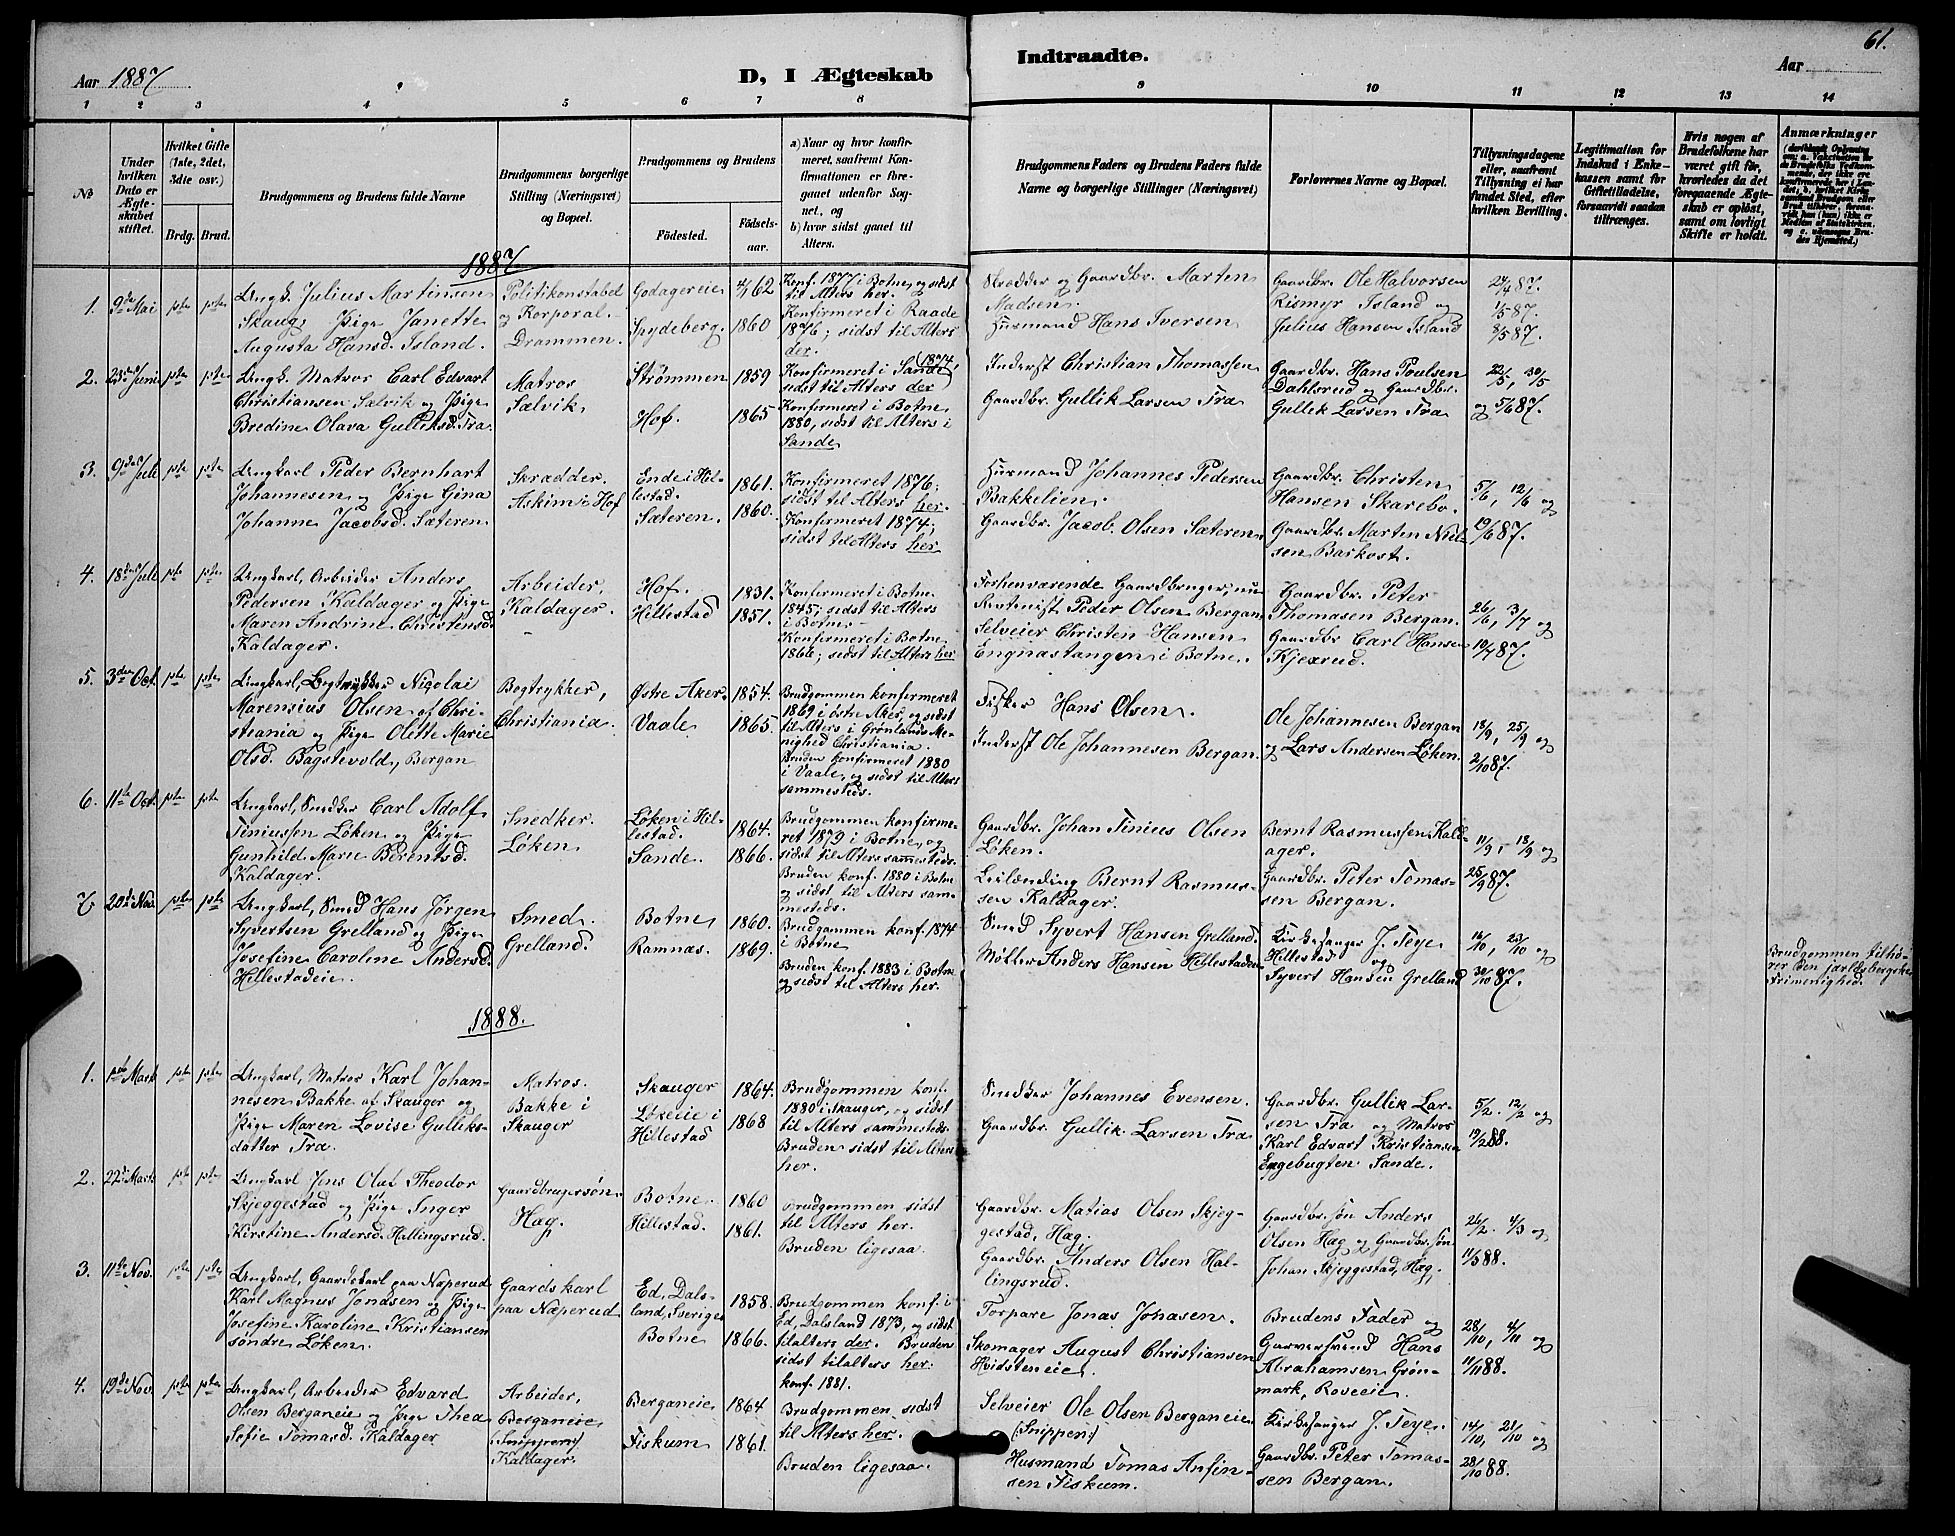 61.
Aar 1887
D, I Ægteskab
Indtraadte.
Aar
1 2 3 4 5 6 7 8 9 10 11 12 13 14
№
Under hvilken Dato er Ægteskabet stiftet.
Hvilket Gifte (1ste, 2det, 3die osv.)
Brdg. Brud.
Brudgommens og Brudens fulde Navne
Brudgommens borgerlige Stilling (Næringsvei) og Bopæl.
Brudgommens og Brudens
Födested.
Födselsaar.
a) Naar og hvor konfirmeret, saafremt Konfirmationen er foregaaet udenfor Sognet, og
b) hvor sidst gaaet til Alters.
Brudgommens Faders og Brudens Faders fulde Navne og borgerlige Stillinger (Næringsvei)
Forlovernes Navne og Bopæl.
Tillysningsdagene eller, saafremt Tillysning ei har fundet Sted, efter hvilken Bevilling.
Legitimation for Indskud i Enkekassen samt for Giftetilladelse, forsaavidt saadan tiltrænges.
Hvis nogen af Brudefolkene har været gift för, hvorledes da det foregaaende Ægteskab er oplöst, samt om lovligt Skifte er holdt.
Anmærkninger
1887
1. 9de Mai 1ste 1ste
Ungk. Julius Martinsen
Skaug, Pige Janette
Augusta Hansd. Island.
Politikonstabel
og Korporal.
Drammen.
Godagereie 4/1 62
Spydeberg. 1860
Konf. 1877 i Botne, og sidst
til Alters her.
Konfirmeret i Raade
1876; sidst til Alters
der.
Skrædder og Gaardbr. Marten
Madsen.
Husmand Hans Iversen
Gaardbr. Ole Halvorsen
Rismyr Island og
Julius Hansen Island
24/4 87.
1/5 87.
8/5 87.
2. 23de Juni 1ste 1ste
Ungk. Matros Carl Edvart
Christiansen Sælvik og Pige
Bredine Olava Gulliksd. Tra.
Matros
Sælvik
Strømmen 1859
Hof. 1865
Konfirmeret i Sande 1874,
sidst til Alters der
Konfirmeret i Botne
1880, sidst til Alters i
Sande
Inderst Christian Thomassen
Gaardbr. Gullik Larsen Tra
Gaardbr. Hans Poulsen
Dahlsrud og Gaardbr.
Gullik Larsen Tra
22/5, 30/5
og 5/6 87.
3. 9de Juli 1ste 1ste
Ungkarl Peder Bernhart
Johannesen og Pige Gina
Johanne Jacobsd. Sæteren.
Skrædder.
Askim i Hof
Ende i Hillestad. 1861.
Sæteren. 1860.
Konfirmeret 1876;
sidst til Alters her.
Konfirmeret 1874;
sidst til Alters her
Husmand Johannes Pedersen
Bakkelien.
Gaardbr. Jacob Olsen Sæteren.
Gaardbr. Christen
Hansen Skarebo.
Gaardbr. Marten Nielsen Barkost.
5/6, 12/6 og
19/6 87.
4. 18de Juli 1ste 1ste
Ungkarl, Arbeider Anders
Pedersen Kaldager og Pige
Maren Andrine Christensd.
Kaldager.
Arbeider,
Kaldager.
Hof. 1831.
Hillestad 1851.
Konfirmeret i Botne
1845; sidst til Alters
i Botne.
Konfirmeret i Botne
1866; sidst til Alters her
Forhenværende Gaardbruger, nu
Peder Olsen Bergan.
Selveier Christen Hansen
Engnastangen i Botne.
Gaardbr. Peter
Thomasen Bergan.
Gaardbr Carl Hansen
Kjexrud.
26/6, 3/7 og
10/7 87.
5. 3die Oct. 1ste 1ste
Ungkarl, Bogtrykker Nicolai
Marensius Olsen af Christiania og Pige Olette Marie
Olsd. Bagstevold, Bergan
Bogtrykker,
Christiania.
Østre Aker. 1854.
Vaale 1865.
Brudgommen konfirmeret
1869 i østre Aker, og sidst
til Alters i Grønlands Menighed Christiania.
Bruden konfirmeret 1880
i Vaale, og sidst til Alters
sammesteds.
Fisker Hans Olsen.
Inderst Ole Johannesen Bergan.
Ole Johannesen Bergan
og Lars Andersen Løken.
18/9, 25/9 og
2/10 87.
6. 11te Oct. 1ste 1ste
Ungkarl, Snedker Carl Adolf
Tiniussen Løken og Pige
Gunhild Marie Berentsd.
Kaldager.
Snedker.
Løken
Løken i Hillestad. 1864.
Sande. 1866.
Brudgommen konfirmeret 1879 i Botne, og
sidst til Alters sammesteds.
Bruden konf. 1880 i Botne
og sidst til Alters sammesteds.
Gaardbr. Johan Tinius Olsen
Løken.
Leilænding Bernt Rasmussen Kaldager.
Bernt Rasmussen Kaldager.
Gaardbr. Peter Tomassen Bergan.
11/9, 18/9 og
25/9 87.
7 20de Nov. 1ste 1ste
Ungkarl, Smed Hans Jørgen
Syvertsen Grelland og Pige
Josefine Caroline Andersd.
Hillestadeie.
Smed.
Grelland.
Botne 1860.
Ramnæs. 1869.
Brudgommen konf. 1874
i Botne
Bruden konf. 1883 i Botne
og sidst til Alters her.
Smed Syvert Hansen Grelland.
Møller Anders Hansen Hillestadeie
Kirkesanger J. Teye
Hillestad og
Syvert Hansen Grelland
16/10, 23/10 og
30/10 87.
Brudgommen tilhører den jarlsbergske
Frimenighed.
1888.
1. 1ste Marts 1ste 1ste
Ungkarl, Matros Karl Johannesen Bakke af Skauger og
Pige Maren Lovise Gulliksdatter Tra.
Matros.
Bakke i
Skauger
Skauger 1864.
Løkeie i
Hillestad 1868
Brudgommen konf.
1880 i Skauger, og sidst
til Alters sammesteds.
Bruden sidst til Alters
her.
Snedker Johannes Evensen.
Gaardbr. Gullik Larsen Tra
Gaardbr. Gullik Larsen Tra og Matros
Karl Edvart Kristiansen
Engebugten Sande.
5/2. 12/2 og
19/2 88.
2. 22de Marts 1ste 1ste
Ungkarl Jens Olaf Theodor
Skjeggestad og Pige Inger
Kirstine Andersd. Hallingsrud.
Gaardbrugersøn.
Hæg.
Botne. 1860
Hillestad. 1861.
Brudgommen sidst
til Alters her.
Bruden ligesaa.
Gaardbr. Matias Olsen Skjeggestad, Hæg.
Gaardbr. Anders Olsen Hallingsrud.
Gaardbr. søn Anders
Olsen Hæg og Gaardbr. søn
Johan Skjeggestad, Hæg.
26/2. 4/3 og
11/3 88.
3. 11te Nov. 1ste 1ste
Ungkarl, Gaardskarl paa Næperud
Karl Magnus Jonasen og Pige
Josefine Karoline Kristiansen
søndre Løken.
Gaardskarl
paa Næperud
Ed, Dalsland, Sverige 1858.
Botne 1866.
Brudgommen konf. i
Ed, Dalsland 1873, og sidst
til alters der. Bruden
sidst til alters her.
konf. 1881.
Torpare Jonas Jonasen.
Skomager August Christiansen
Hvidsteneie.
Brudens Fader og
Garversvend Hans
Abrahamsen Grønmark, Roveeie.
28/10, 4/11 og
11/11 88.
4. 19de Nov. 1ste 1ste
Ungkarl, Arbeider Edvard
Olsen Berganeie og Pige Thea
Sofie Tomasd. Kaldager
Arbeider,
Berganeie
(Snippen)
Kaldager.
Berganeie 1864
Fiskum 1861.
Brudgommen sidst
til Alters her.
Bruden ligesaa.
Selveier Ole Olsen Berganeie
(Snippen)
Husmand Tomas Anfinsen Fiskum.
Kirkesanger J. Teye.
Gaardbr. Peter Tomassen Bergan.
14/10, 21/10 og
28/10 88.